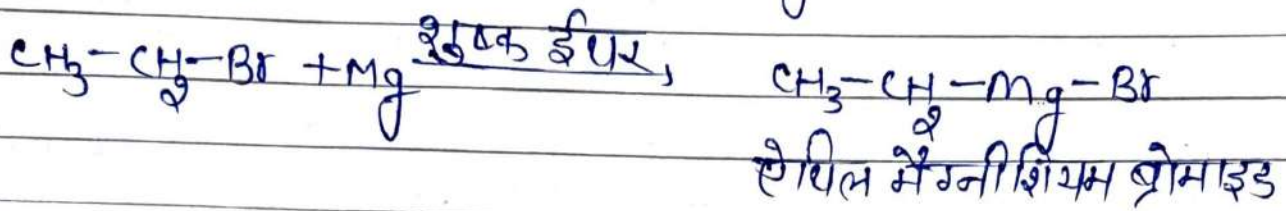 CH₃-CH₂-Br + Mg शुष्क ईथर, CH₃-CH₂-Mg-Br
ऐथिल मैग्नीशियम ब्रोमाइड